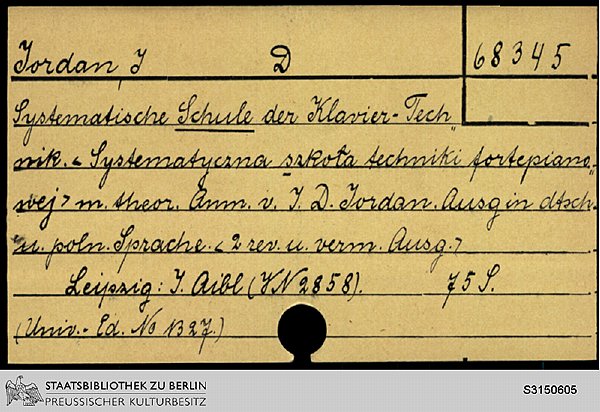 Jordan, J D 68345
Systematische Schule der Klavier-Tech„
nik. < Systematyczna szkoła techniki fortepiano„
wej > m. theor. Anm. v. J. D. Jordan. Ausg in dtsch.
u. poln. Sprache. < 2 rev. u. verm. Ausg. >
Leipzig: J. Aibl (VN 2858). 75 S.
(Univ.-Ed. No 1327.)
STAATSBIBLIOTHEK ZU BERLIN
PREUSSISCHER KULTURBESITZ
S3150605